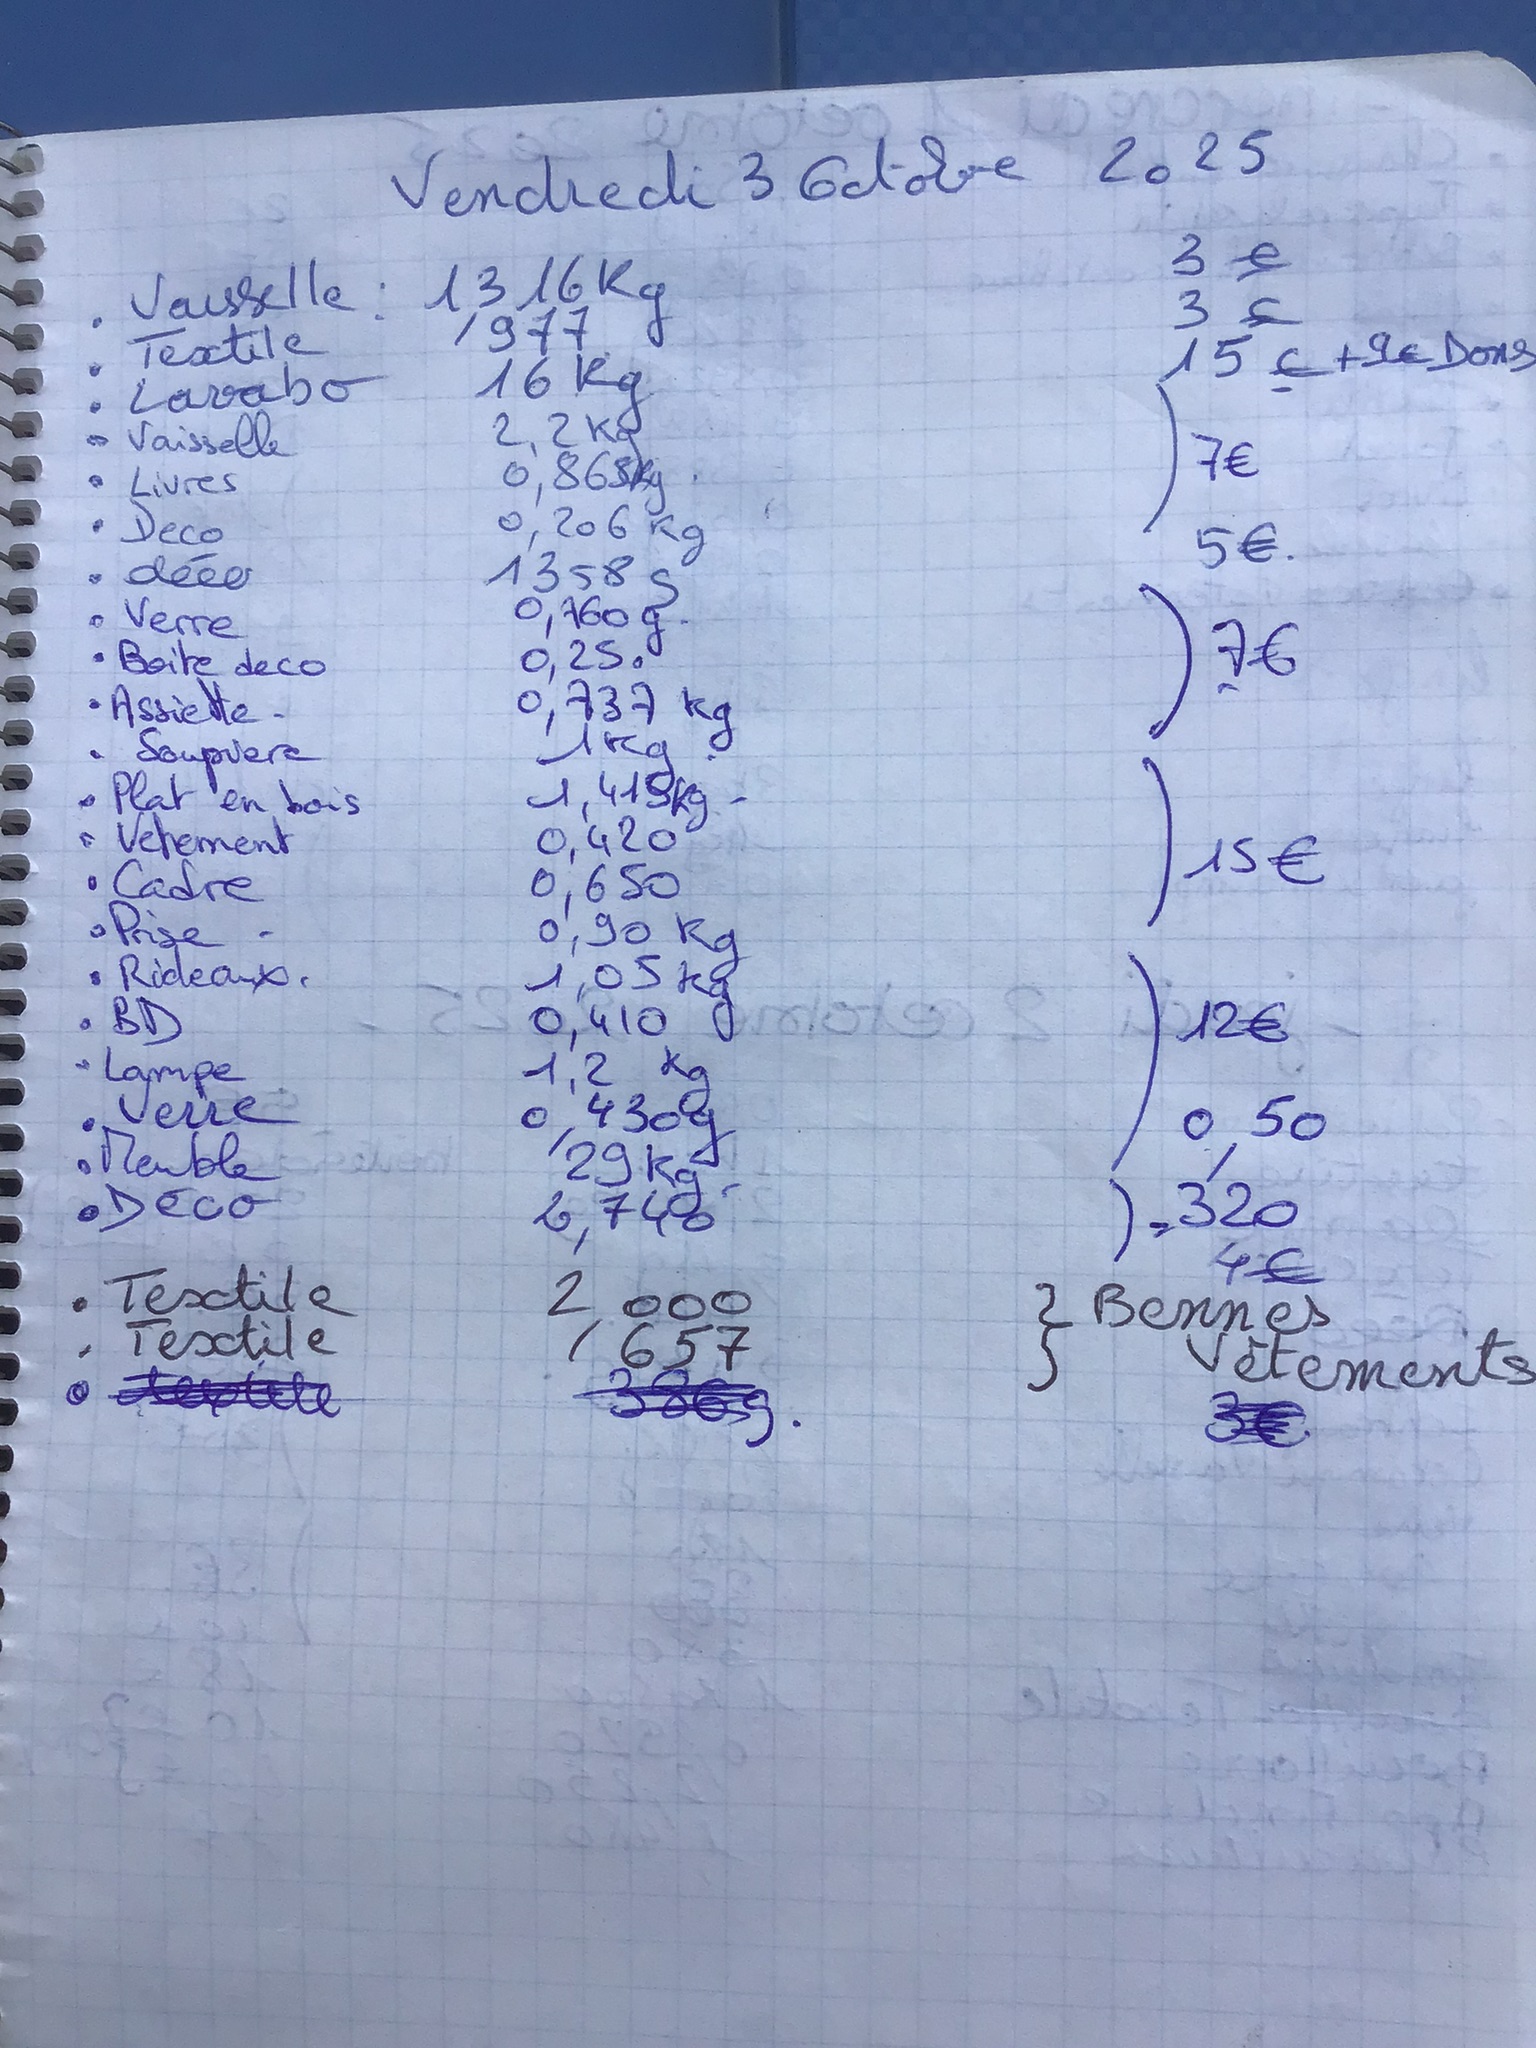 Vendredi 3 Octobre 2025
. Vaisselle : 1316 Kg 3 €
. Textile , 977 3 €
. Lavabo 16 Kg 15 € + 9€ Dons
. Vaisselle 2,2 Kg
. Livres 0,865Kg. 7€
. Deco 0,206 Kg
. déco 1358 g 5€.
. Verre 0,760 g.
. Boite deco 0,250 7€
. Assiette - 0,737 kg
. Soupiere 1 Kg.
. Plat en bois 1,415kg -
. Vetement 0,420
. Cadre 0,650 15€
. Prise - 0,90 Kg
. Rideaux. 1,05 kg
. BD 0,410 12€
. Lampe 1,2 Kg
. Verre 0,430g 0,50
. Meuble 29 kg -
. Déco 2,740 ) = 320
4€
. Textile 2,000 } Bennes
. Textile , 657 } Vêtements